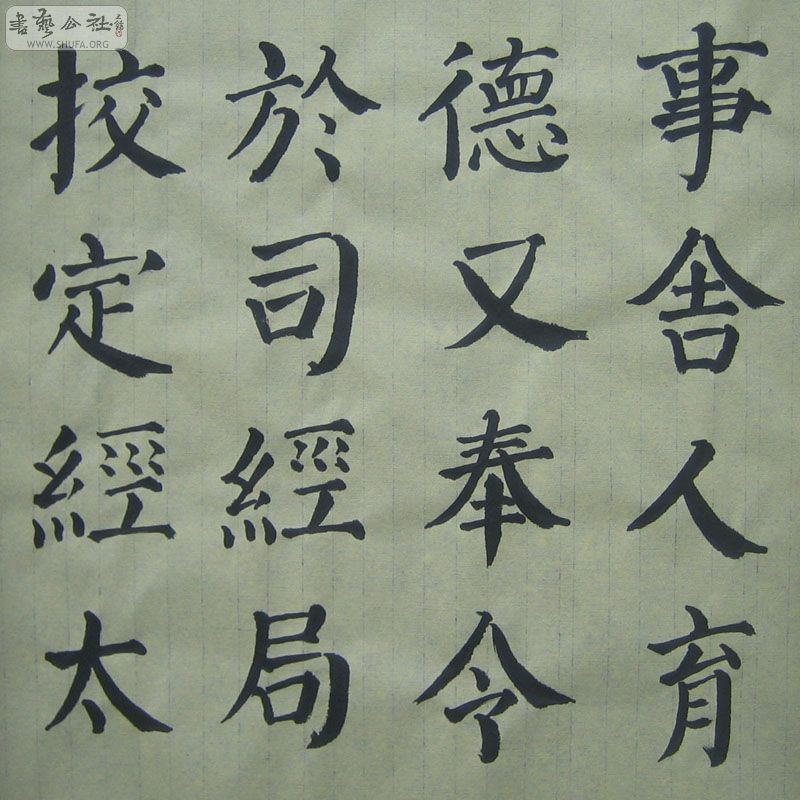 事舍人育
德又奉令
於司經局
挍定經太
書藝公社
WWW.SHUFA.ORG